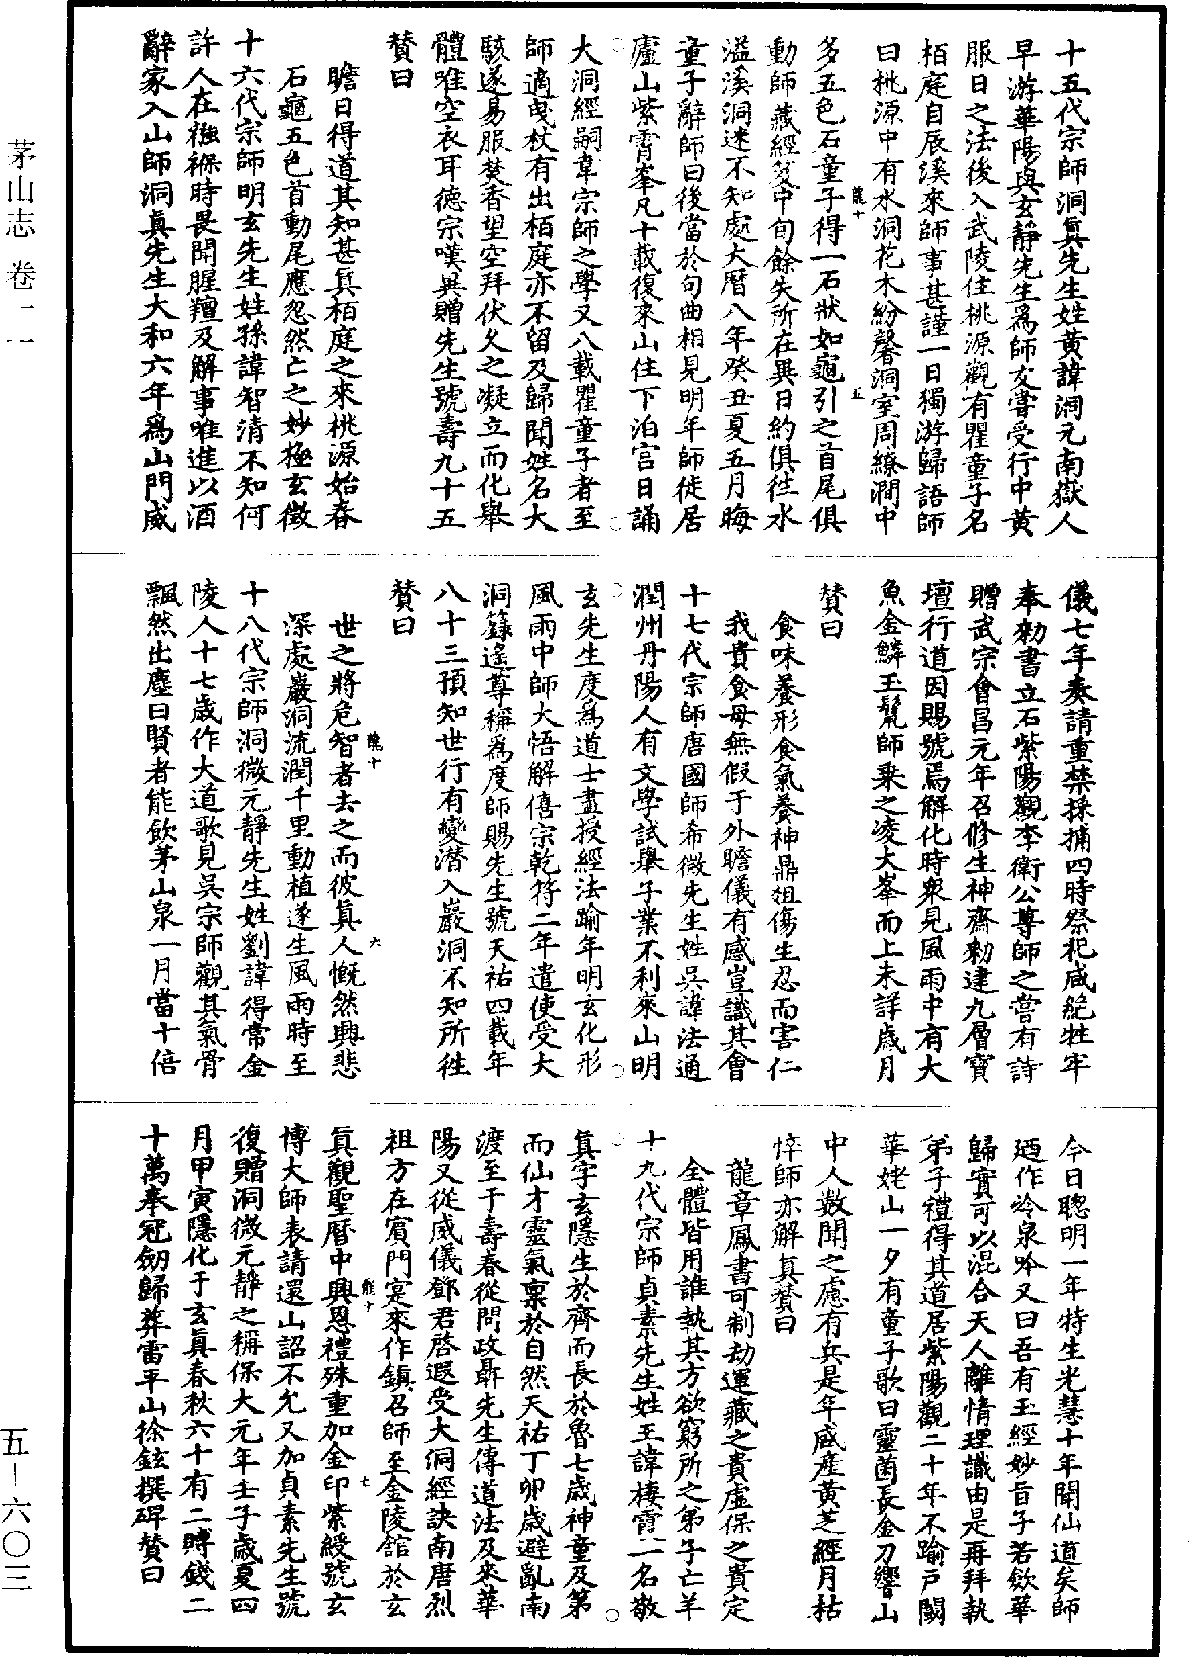 茅山志 卷一一
五—六〇三
十五代宗師洞眞先生姓黃諱洞元南嶽人
早游華陽與玄靜先生爲師友嘗受行中黃
服日之法後入武陵住桃源觀有瞿童子名
栢庭自辰溪來師事甚謹一日獨游歸語師
曰桃源中有水洞花木紛馨洞室周繚澗中
多五色石童子得一石狀如龜引之首尾俱
動師藏經笈中旬餘失所在異日約俱往水
溢溪洞迷不知處大曆八年癸丑夏五月晦
童子辭師曰後當於句曲相見明年師徙居
廬山紫霄峯凡十載復來山住下泊宮日誦
大洞經嗣韋宗師之學又八載瞿童子者至
師適曳杖有出栢庭亦不留及歸聞姓名大
駭遂易服焚香望空拜伏久之凝立而化舉
體唯空衣耳德宗嘆異贈先生號壽九十五
贊曰
瞻日得道其知甚眞栢庭之來桃源始春
石龜五色首動尾應忽然亡之妙極玄徵
十六代宗師明玄先生姓孫諱智清不知何
許人在襁褓時畏聞腥羶及解事唯進以酒
辭家入山師洞眞先生大和六年爲山門威
儀七年奏請重禁採捕四時祭祀咸絶牲牢
奉勑書立石紫陽觀李衛公尊師之嘗有詩
贈武宗會昌元年召修生神齋勑建九層寶
壇行道因賜號焉解化時衆見風雨中有大
魚金鱗玉鬣師乘之凌大峯而上未詳歲月
贊曰
食味養形食氣養神鼎俎傷生忍而害仁
我貴食母無假于外瞻儀有感豈識其會
十七代宗師唐國師希微先生姓吳諱法通
潤州丹陽人有文學試舉子業不利來山明
玄先生度爲道士盡授經法踰年明玄化形
風雨中師大悟解僖宗乾符二年遣使受大
洞籙遙尊稱爲度師賜先生號天祐四載年
八十三預知世行有變潛入巖洞不知所往
贊曰
世之將危智者去之而彼眞人慨然興悲
深處巖洞流潤千里動植遂生風雨時至
十八代宗師洞微元靜先生姓劉諱得常金
陵人十七歲作大道歌見吳宗師觀其氣骨
飄然出塵曰賢者能飲茅山泉一月當十倍
今日聰明一年特生光慧十年聞仙道矣師
廼作冷泉吟又曰吾有玉經妙旨子若斂華
歸實可以混合天人離情理識由是再拜執
弟子禮得其道居紫陽觀二十年不踰戶閾
華姥山一夕有童子歌曰靈菌長金刀響山
中人數聞之慮有兵是年盛產黃芝經月枯
悴師亦解眞贊曰
龍章鳳書可制劫運藏之貴虛保之貴定
全體皆用誰執其方欲窮所之第子亡羊
十九代宗師貞素先生姓王諱棲霄一名敬
眞字玄隱生於齊而長於魯七歲神童及第
而仙才靈氣禀於自然天祐丁卯歲避亂南
渡至于壽春從問政聶先生傳道法及來華
陽又從威儀鄧君啓遐受大洞經訣南唐烈
祖方在賓門寔來作鎮召師至金陵舘於玄
眞觀聖曆中興恩禮殊重加金印紫綬號玄
博大師表請還山詔不允又加貞素先生號
復贈洞微元靜之稱保大元年壬子歲夏四
月甲寅隱化于玄眞春秋六十有二賻錢二
十萬奉冠劒歸葬雷平山徐鉉撰碑贊曰